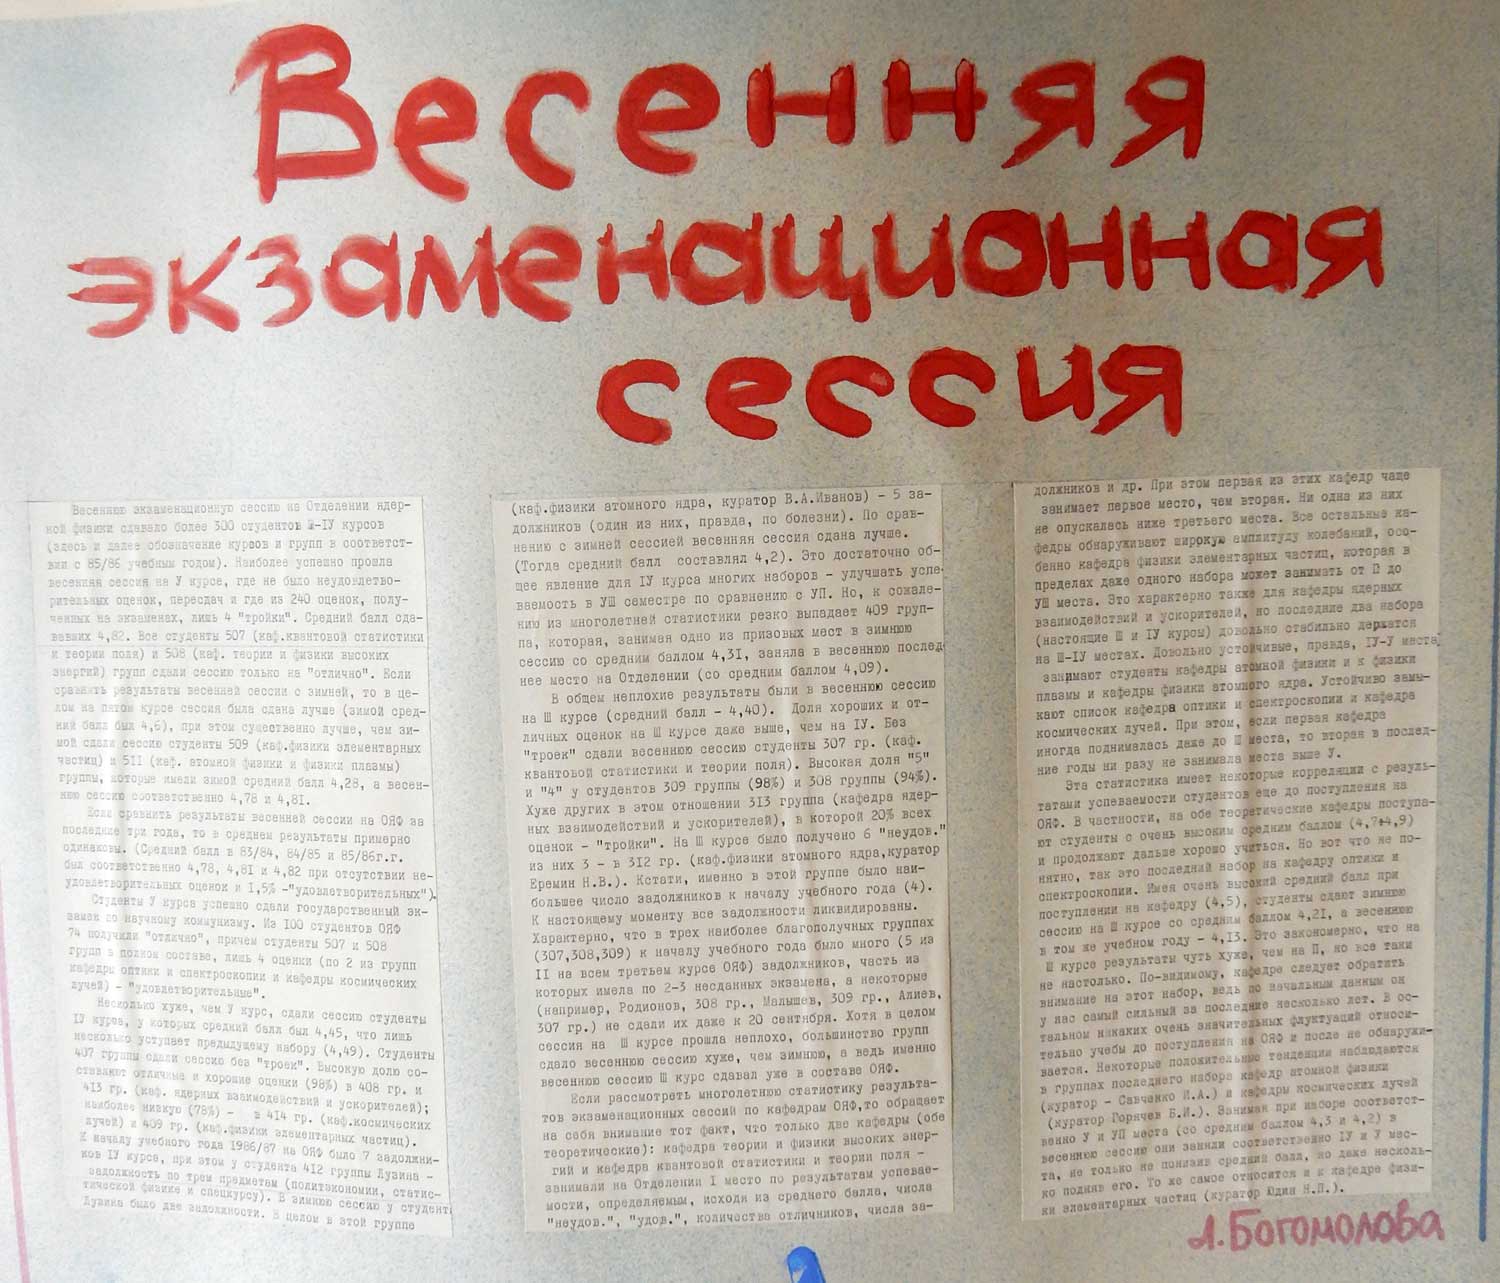 Весенняя
экзаменационная
сессия
Весеннюю экзаменационную сессию на Отделении ядер-
ной физики сдавало более 300 студентов Ш-IУ курсов
(здесь и далее обозначение курсов и групп в соответст-
вии с 85/86 учебным годом). Наиболее успешно прошла
весенняя сессия на У курсе, где не было неудовлетво-
рительных оценок, пересдач и где из 240 оценок, полу-
ченных на экзаменах, лишь 4 "тройки". Средний балл сда-
вавших 4,82. Все студенты 507 (каф.квантовой статистики
и теории поля) и 508 (каф. теории и физики высоких
энергий) групп сдали сессию только на "отлично". Если
сравнить результаты весенней сессии с зимней, то в це-
лом на пятом курсе сессия была сдана лучше (зимой сред-
ний балл был 4,6), при этом существенно лучше, чем зи-
мой сдали сессию студенты 509 (каф.физики элементарных
частиц) и 5II (каф. атомной физики и физики плазмы)
группы, которые имели зимой средний балл 4,28, а весен-
нюю сессию соответственно 4,78 и 4,8I.
Если сравнить результаты весенней сессии на ОЯФ за
последние три года, то в среднем результаты примерно
одинаковы. (Средний балл в 83/84, 84/85 и 85/86г.г.
был соответственно 4,78, 4,8I и 4,82 при отсутствии не-
удовлетворительных оценок и I,5% -"удовлетворительных").
Студенты У курса успешно сдали государственный эк-
замен по научному коммунизму. Из I00 студентов ОЯФ
74 получили "отлично", причем студенты 507 и 508
групп в полном составе, лишь 4 оценки (по 2 из групп
кафедры оптики и спектроскопии и кафедры космических
лучей) - "удовлетворительные".
Несколько хуже, чем У курс, сдали сессию студенты
IУ курса, у которых средний балл был 4,45, что лишь
несколько уступает предыдущему набору (4,49). Студенты
407 группы сдали сессию без "троек". Высокую долю со-
ставляют отличные и хорошие оценки (98%) в 408 гр. и
4I3 гр. (каф. ядерных взаимодействий и ускорителей);
наиболее низкую (78%) - в 4I4 гр. (каф.космических
лучей) и 409 гр. (каф.физики элементарных частиц).
К началу учебного года I986/87 на ОЯФ было 7 должни-
ков IУ курса, при этом у студента 4I2 группы Лузина -
задолжность по трем предметам (политэкономии, статис-
тической физике и спецкурсу). В зимнюю сессию у студент
Лузина было две задолжности. В целом в этой группе
(каф.физики атомного ядра, куратор В.А.Иванов) - 5 за-
должников (один из них, правда, по болезни). По срав-
нению с зимней сессией весенняя сессия сдана лучше.
(Тогда средний балл составлял 4,2). Это достаточно об-
щее явление для IУ курса многих наборов - улучшать успе-
ваемость в УШ семестре по сравнению с УП. Но, к сожале-
нию из многолетней статистики резко выпадает 409 груп-
па, которая, занимая одно из призовых мест в зимнюю
сессию со средним баллом 4,3I, заняла в весеннюю послед-
нее место на Отделении (со средним баллом 4,09).
В общем неплохие результаты были в весеннюю сессию
на Ш курсе (средний балл - 4,40). Доля хороших и от-
личных оценок на Ш курсе даже выше, чем на IУ. Без
"троек" сдали весеннюю сессию студенты 307 гр. (каф.
квантовой статистики и теории поля). Высокая доля "5"
и "4" у студентов 309 группы (98%) и 308 группы (94%).
Хуже других в этом отношении 3I3 группа (кафедра ядер-
ных взаимодействий и ускорителей), в которой 20% всех
оценок - "тройки". На Ш курсе было получено 6 "неудов."
из них 3 - в 3I2 гр. (каф.физики атомного ядра,куратор
Еремин Н.В.). Кстати, именно в этой группе было наи-
большее число задолжников к началу учебного года (4).
К настоящему моменту все задолжности ликвидированы.
Характерно, что в трех наиболее благополучных группах
(307,308,309) к началу учебного года было много (5 из
II на всем третьем курсе ОЯФ) задолжников, часть из
которых имела по 2-3 несданных экзамена, а некоторые
(например, Родионов, 308 гр., Малышев, 309 гр., Алиев,
307 гр.) не сдали их даже к 20 сентября. Хотя в целом
сессия на Ш курсе прошла неплохо, большинство групп
сдало весеннюю сессию хуже, чем зимнюю, а ведь именно
весеннюю сессию Ш курс сдавал уже в составе ОЯФ.
Если рассмотреть многолетнюю статистику результа-
тов экзаменационных сессий по кафедрам ОЯФ,то обращает
на себя внимание тот факт, что только две кафедры (обе
теоретические): кафедра теории и физики высоких энер-
гий и кафедра квантовой статистики и теории поля -
занимали на Отделении I место по результатам успевае-
мости, определяемым, исходя из среднего балла, числа
"неудов.", "удов.", количества отличников, числа за-
должников и др. При этом первая из этих кафедр чаще
занимает первое место, чем вторая. Ни одна из них
не опускалась ниже третьего места. Все остальные ка-
федры обнаруживают широкую амплитуду колебаний, осо-
бенно кафедра физики элементарных частиц, которая в
пределах даже одного набора может занимать от П до
УШ места. Это характерно также для кафедры ядерных
взаимодействий и ускорителей, но последние два набора
(настоящие Ш и IУ курсы) довольно стабильно держатся
на Ш-IУ местах. Довольно устойчивые, правда, IУ-У места
занимают студенты кафедры атомной физики и к физики
плазмы и кафедры физики атомного ядра. Устойчиво замы-
кают список кафедра оптики и спектроскопии и кафедра
космических лучей. При этом, если первая кафедра
иногда поднималась даже до Ш места, то вторая в послед-
ние годы ни разу не занимала места выше У.
Эта статистика имеет некоторые корреляции с резуль-
татами успеваемости студентов еще до поступления на
ОЯФ. В частности, на обе теоретические кафедры поступа-
ют студенты с очень высоким средним баллом (4,7÷4,9)
и продолжают дальше хорошо учиться. Но вот что не по-
нятно, так это последний набор на кафедру оптики и
спектроскопии. Имея очень высокий средний балл при
поступлении на кафедру (4,5), студенты сдают зимнюю
сессию на Ш курсе со средним баллом 4,2I, а весеннюю
в том же учебном году - 4,I3. Это закономерно, что на
Ш курсе результаты чуть хуже, чем на П, но все таки
не настолько. По-видимому, кафедре следует обратить
внимание на этот набор, ведь по начальным данным он
у нас самый сильный за последние несколько лет. В ос-
тальном никаких очень значительных флуктуаций относи-
тельно учебы до поступления на ОЯФ и после не обнаружи-
вается. Некоторые положительные тенденции наблюдаются
в группах последнего набора кафедр атомной физики
(куратор - Савченко И.А.) и кафедры космических лучей
(куратор Горячев Б.И.). Занимая при наборе соответст-
венно У и УП места (со средним баллом 4,3 и 4,2) в
весеннюю сессию они заняли соответственно IУ и У мес-
та, не только не понизив средний балл, но даже несколь-
ко подняв его. То же самое относится и к кафедре физи-
ки элементарных частиц (куратор Юдин Н.П.).
Л.Богомолова